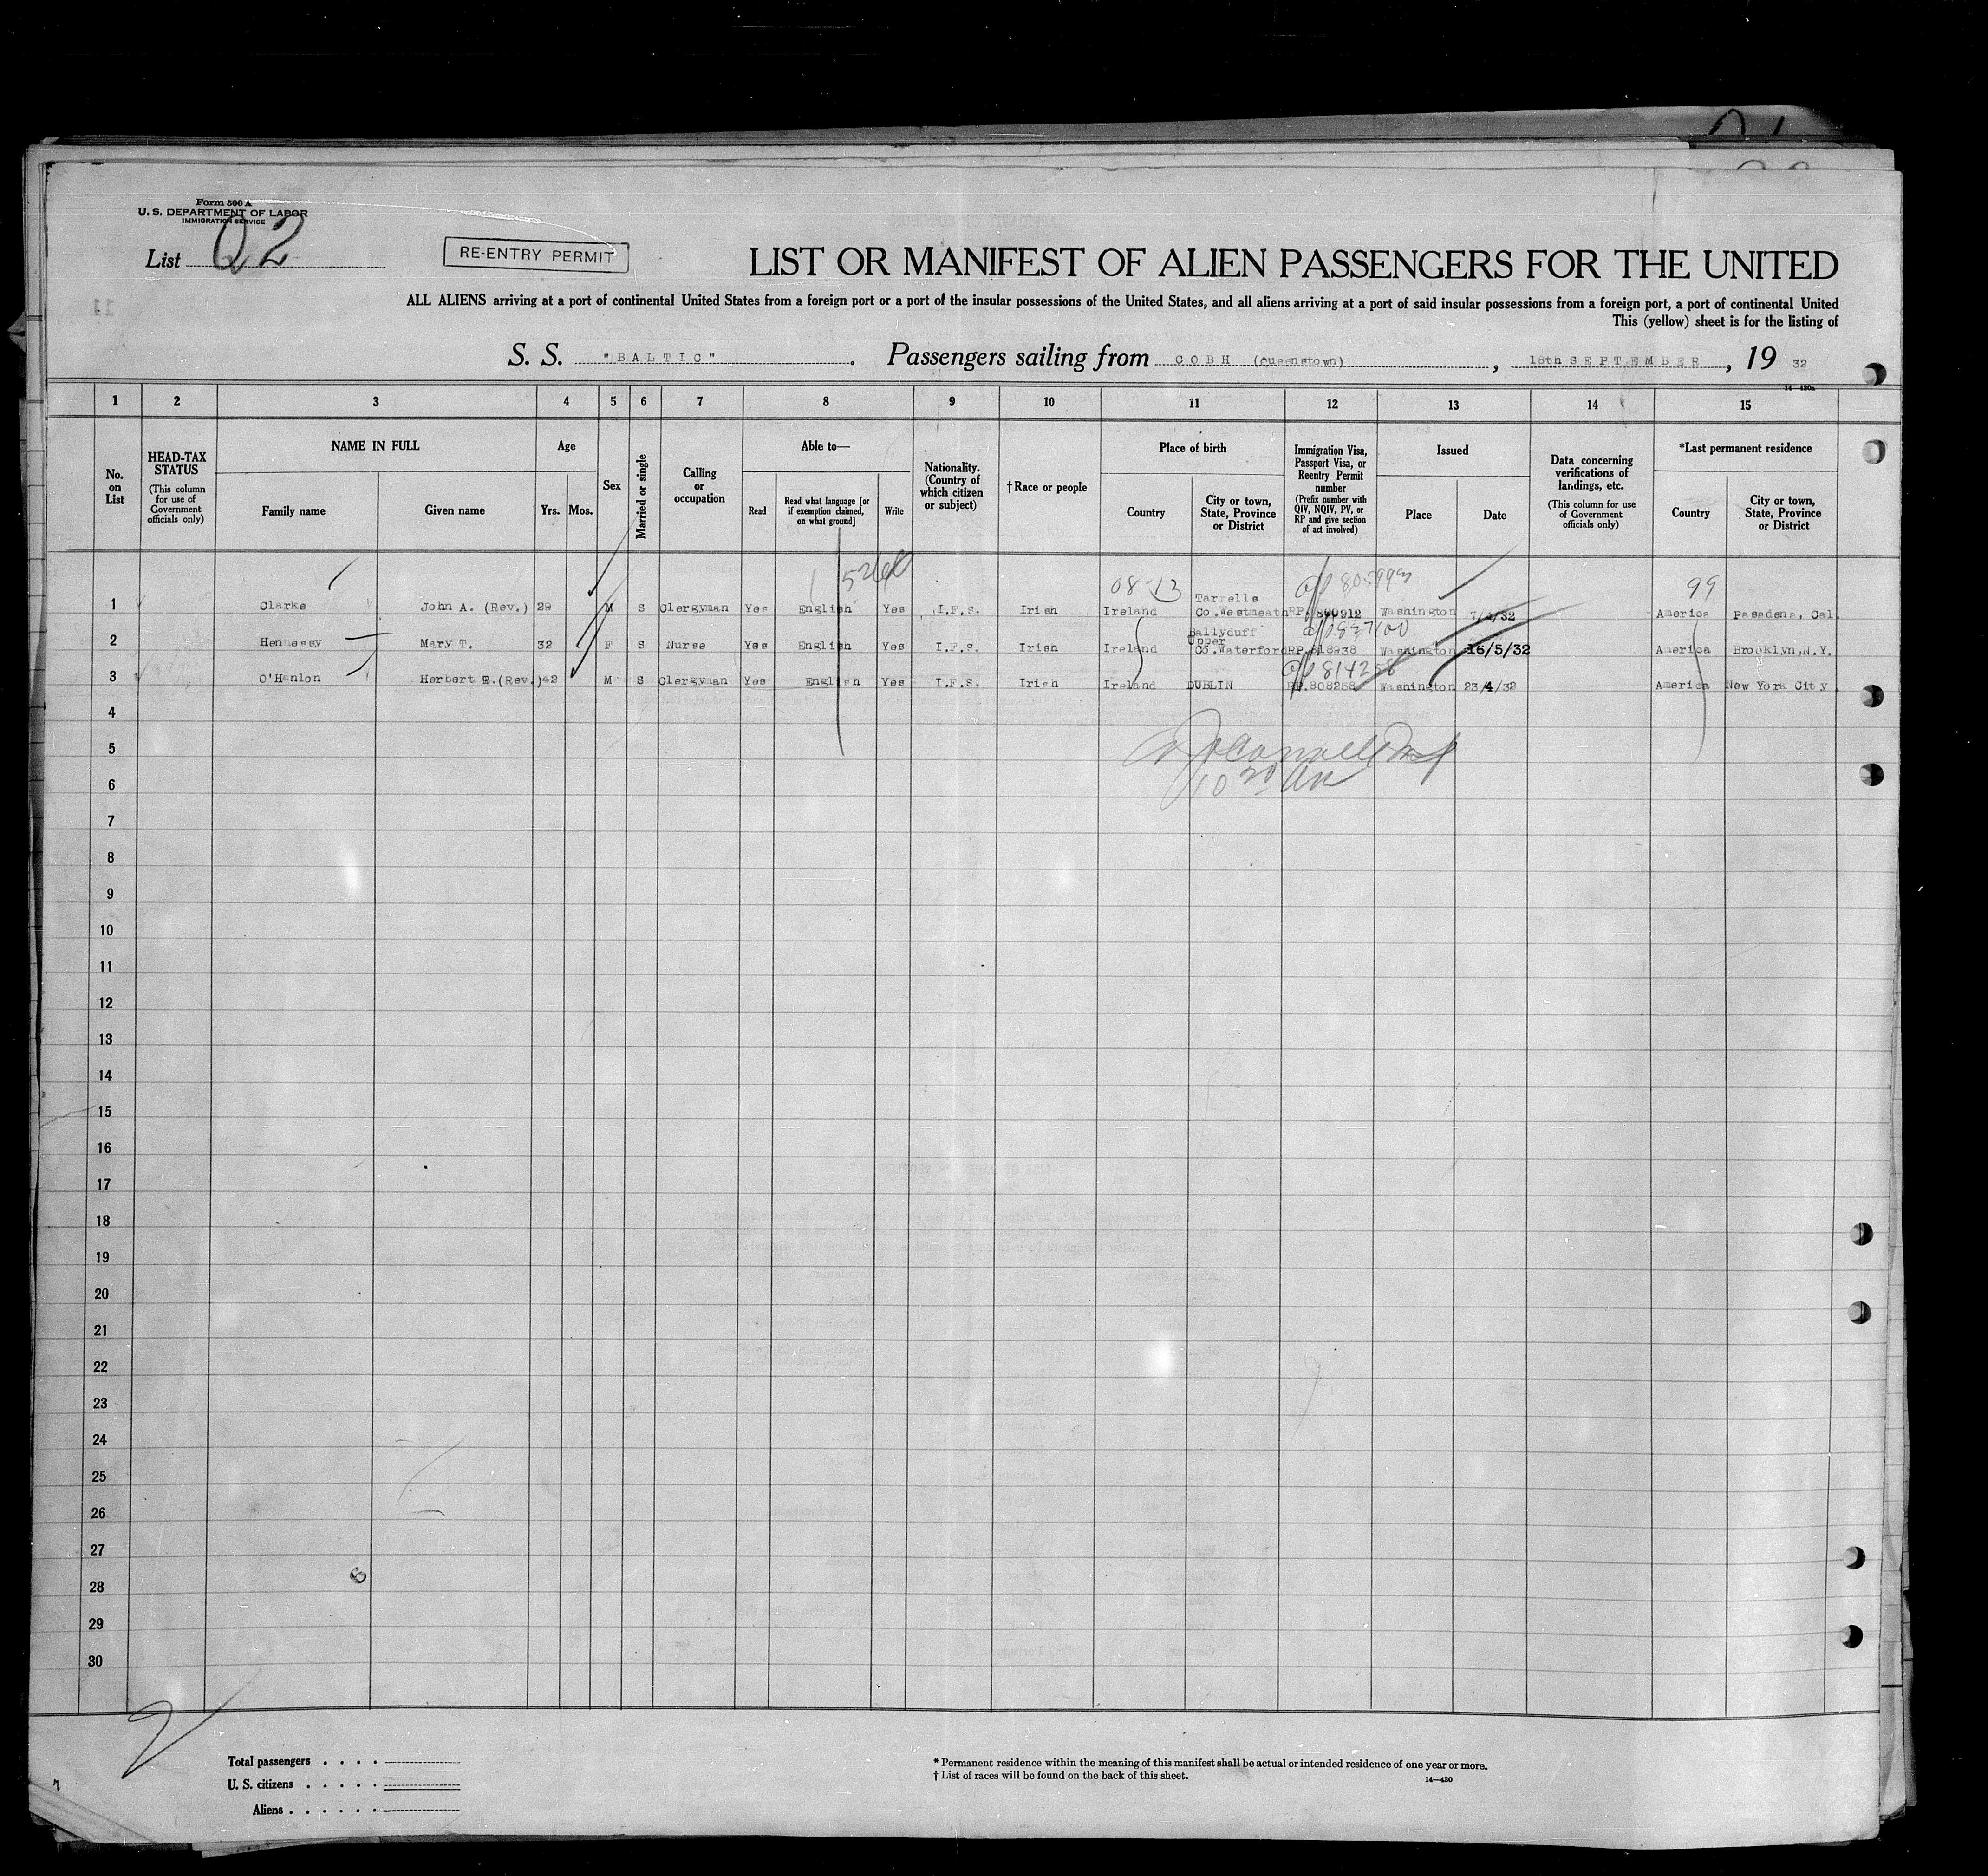 Form 500 A
U. S. DEPARTMENT OF LABOR
IMMIGRATION SERVICE
List 22
RE-ENTRY PERMIT
LIST OR MANIFEST OF ALIEN PASSENGERS FOR THE UNITED
ALL ALIENS arriving at a port of continental United States from a foreign port or a port of the insular possessions of the United States, and all aliens arriving at a port of said insular possessions from a foreign port, a port of continental United
This (yellow) sheet is for the listing of
S. S. "BALTIC". Passengers sailing from COBH (Queenstown), 18th SEPTEMBER, 19 32
14—430a
1 2 3 4 5 6 7 8 9 10 11 12 13 14 15
No. on List
HEAD-TAX STATUS (This column for use of Government officials only)
NAME IN FULL
Family name
Given name
Age
Yrs.
Mos.
Sex
Married or single
Calling or occupation
Able to—
Read
Read what language [or if exemption claimed, on what ground]
Write
Nationality. (Country of which citizen or subject)
†Race or people
Place of birth
Country
City or town, State, Province or District
Immigration Visa, Passport Visa, or Reentry Permit number (Prefix number with QIV, NQIV, PV, or RP and give section of act involved)
Issued
Place
Date
Data concerning verifications of landings, etc. (This column for use of Government officials only)
*Last permanent residence
Country
City or town, State, Province or District
08-13 99
1 Clarke John A. (Rev.) 29 M S Clergyman Yes English Yes I.F.S. Irish Ireland Tarrells Co.Westmeath RP. 800912 Washington 7/4/32 America Pasadena, Cal.
2 Hennessy Mary T. 32 F S Nurse Yes English Yes I.F.S. Irish Ireland Ballyduff Upper Co.Waterford RP.818938 Washington 16/5/32 America Brooklyn,N.Y.
814258
3 O'Hanlon Herbert E.(Rev.) 42 M S Clergyman Yes English Yes I.F.S. Irish Ireland DUBLIN RP.808258 Washington 23/4/32 America New York City
4
5
6
7
8
9
10
11
12
13
14
15
16
17
18
19
20
21
22
23
24
25
26
27
28
29
30
Total passengers . . . .
U. S. citizens . . . . .
Aliens . . . . . .
* Permanent residence within the meaning of this manifest shall be actual or intended residence of one year or more.
† List of races will be found on the back of this sheet.
14—430